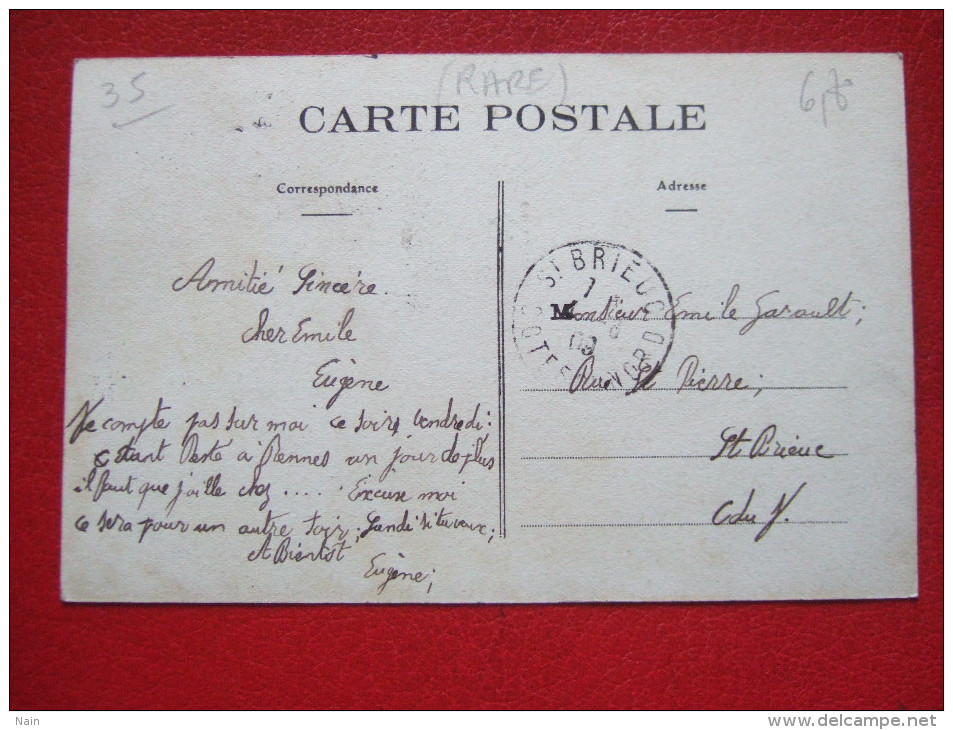 35
(RARE)
CARTE POSTALE
Correspondance
Adresse
ST BRIEUC
COTES DU NORD
Amitié Sincère.
Cher Emile
Eugène
Ne compte pas sur moi ce soir, Vendredi:
étant Resté à Rennes un jour de plus
il faut que j'aille chez ..... Excuse moi
ce sera pour un autre soir; Lundi si tu veux;
A Bientôt
Eugène;
Monsieur Emile Garault;
Rue St Pierre;
St Brieuc
C du N.
Nain
delcampe.net